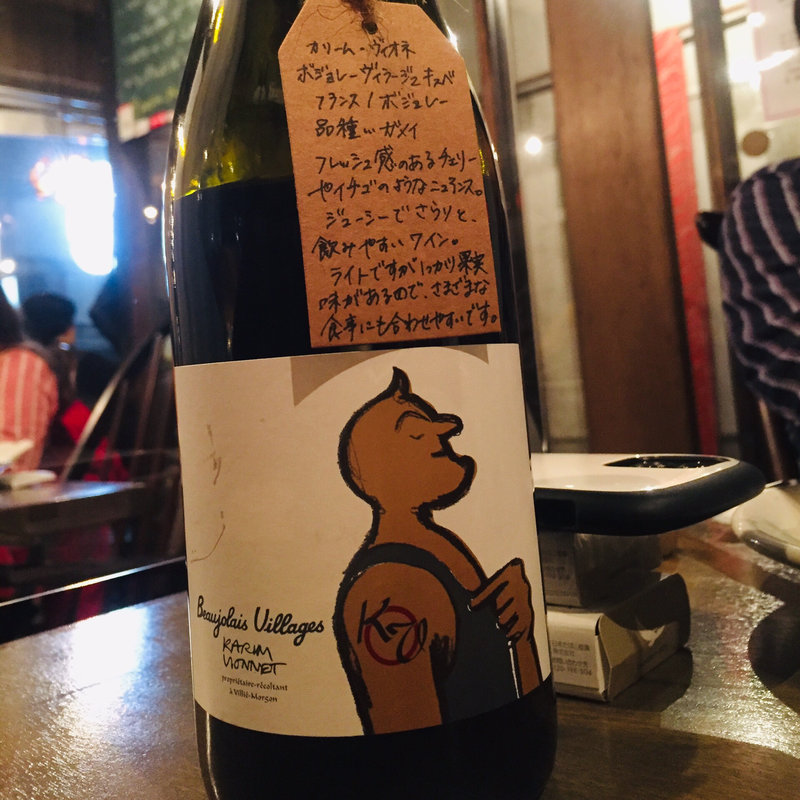 カリーム・ヴィオネ
ボジョレーヴィラージュ キュベ
フランス / ボジョレー
品種:ガメイ
フレッシュ感のあるチェリー
やイチゴのようなニュアンス。
ジューシーでさらりと、
飲みやすいワイン。
ライトですがしっかり果実
味があるので、さまざまな
食事にも合わせやすいです。
KV
Beaujolais Villages
KARIM
VIONNET
propriétaire-récoltant
à Villié-Morgon